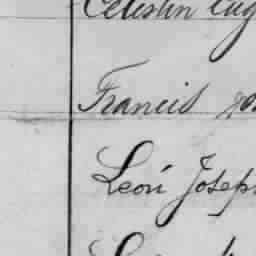 Celestin Eug
Francis
Leon Joseph